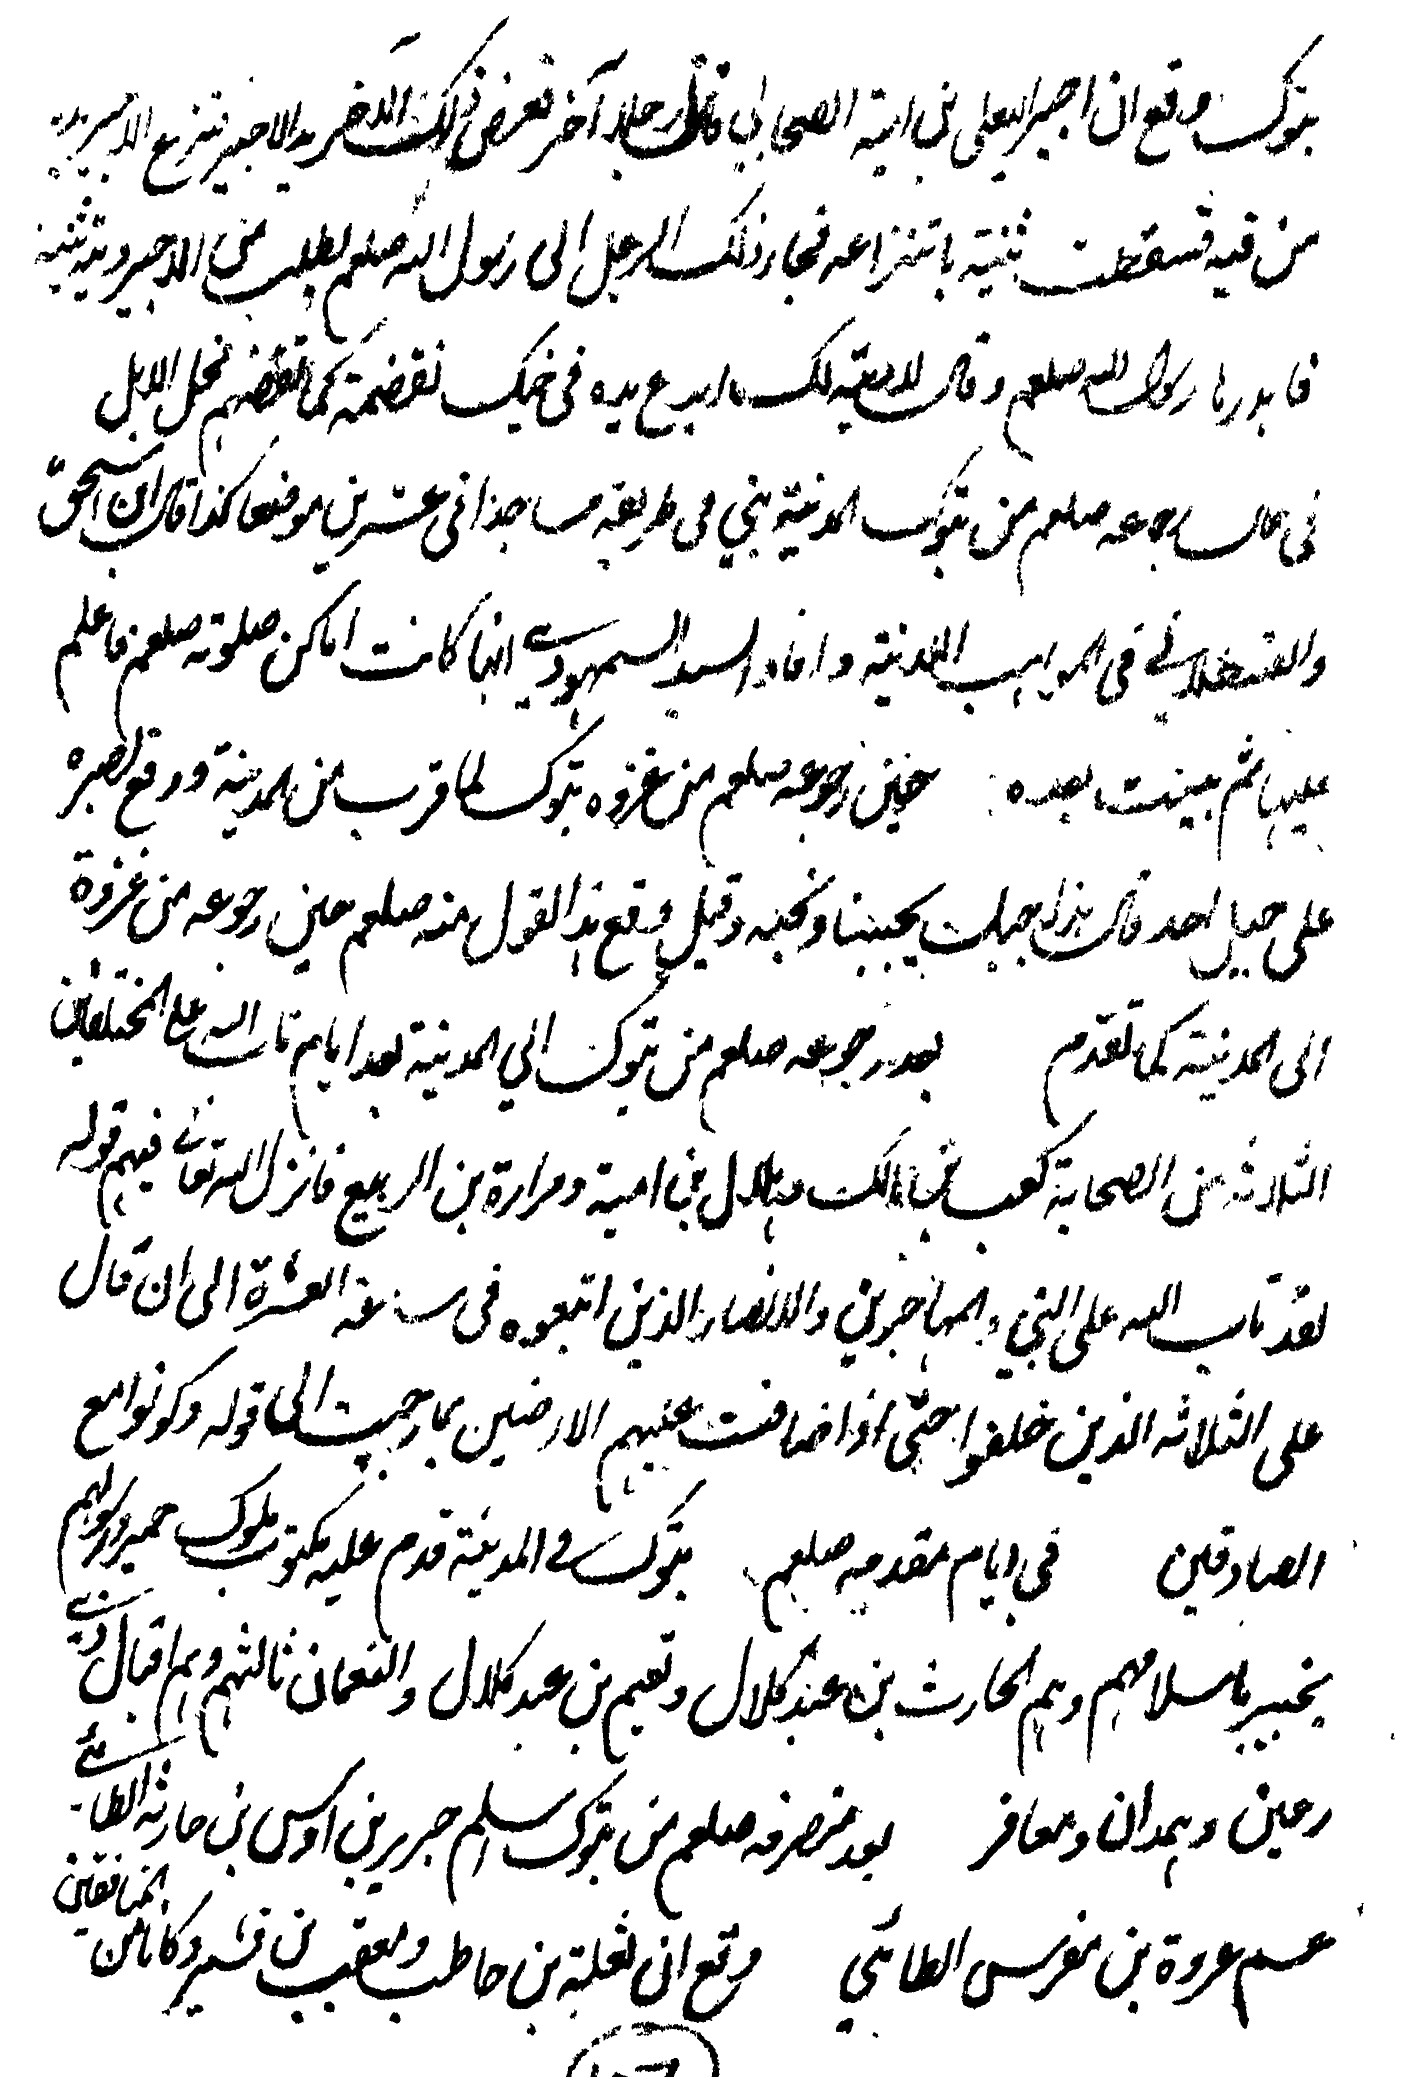 تبوك وقع ان اجير اليعلى بن امية الصحابي قاتل رجلا آخر فعض ذلك الاخر يد الاجير فنزع الاجير يده
من فيه فسقطت ثنية بانتزاعه فجاء ذلك الرجل الى رسول الله صلعم يطلب من الاجير دية ثنية
فاهدرها رسول الله صلعم وقال لا دية لك ايدع يده في فيك تقضمه كما تقضم فحل الابل
في حال رجوعه صلعم من تبوك المدينة بني في طريقه مساجدا في عشرين موضعا كذا قال ابن اسحق
والقسطلاني في المواهب اللدنية وافاد السيد السمهودي انها كانت اماكن صلوته صلعم فاعلم
عليها ثم بينت بعده حين رجوعه صلعم من غزوه تبوك لما قرب من المدينة ووقع بصره
على جبل احد قال هذا جبل يحببنا ونحبه وقيل وقع هذا القول منه صلعم حين رجوعه من غزوة
الى المدينة كما تقدم بعد رجوعه صلعم من تبوك الي المدينة بعد ايام تاب الله على المختلفين
الثلاثة من الصحابة كعب بن مالك وهلال بن امية ومرارة بن الربيع فانزل الله تعالى فيهم قوله
لقد تاب الله على النبي والمهاجرين والانصار الذين اتبعوه في ساعة العسرة الى ان قال
على الثلاثه الذين خلفوا حتى اذا ضاقت عليهم الارضين بما رحبت الى قوله وكونوا مع
الصادقين في ايام مقدمه صلعم تبوك في المدينة قدم عليه مكتوب ملوك حمير ورسولهم
يخبر باسلامهم وهم الحارث بن عبد كلال ونعيم بن عبد كلال والنعمان ثالثهم وهم اقيال ذي
رعين وهمدان ومعافر بعد منصرفه صلعم من تبوك اسلم جرير بن اوس بن حارثه الطائي
عم عروة بن مفرس الطائي وقع ان ثعلبة بن حاطب ومعتب بن قشير وكانا من المنافقين